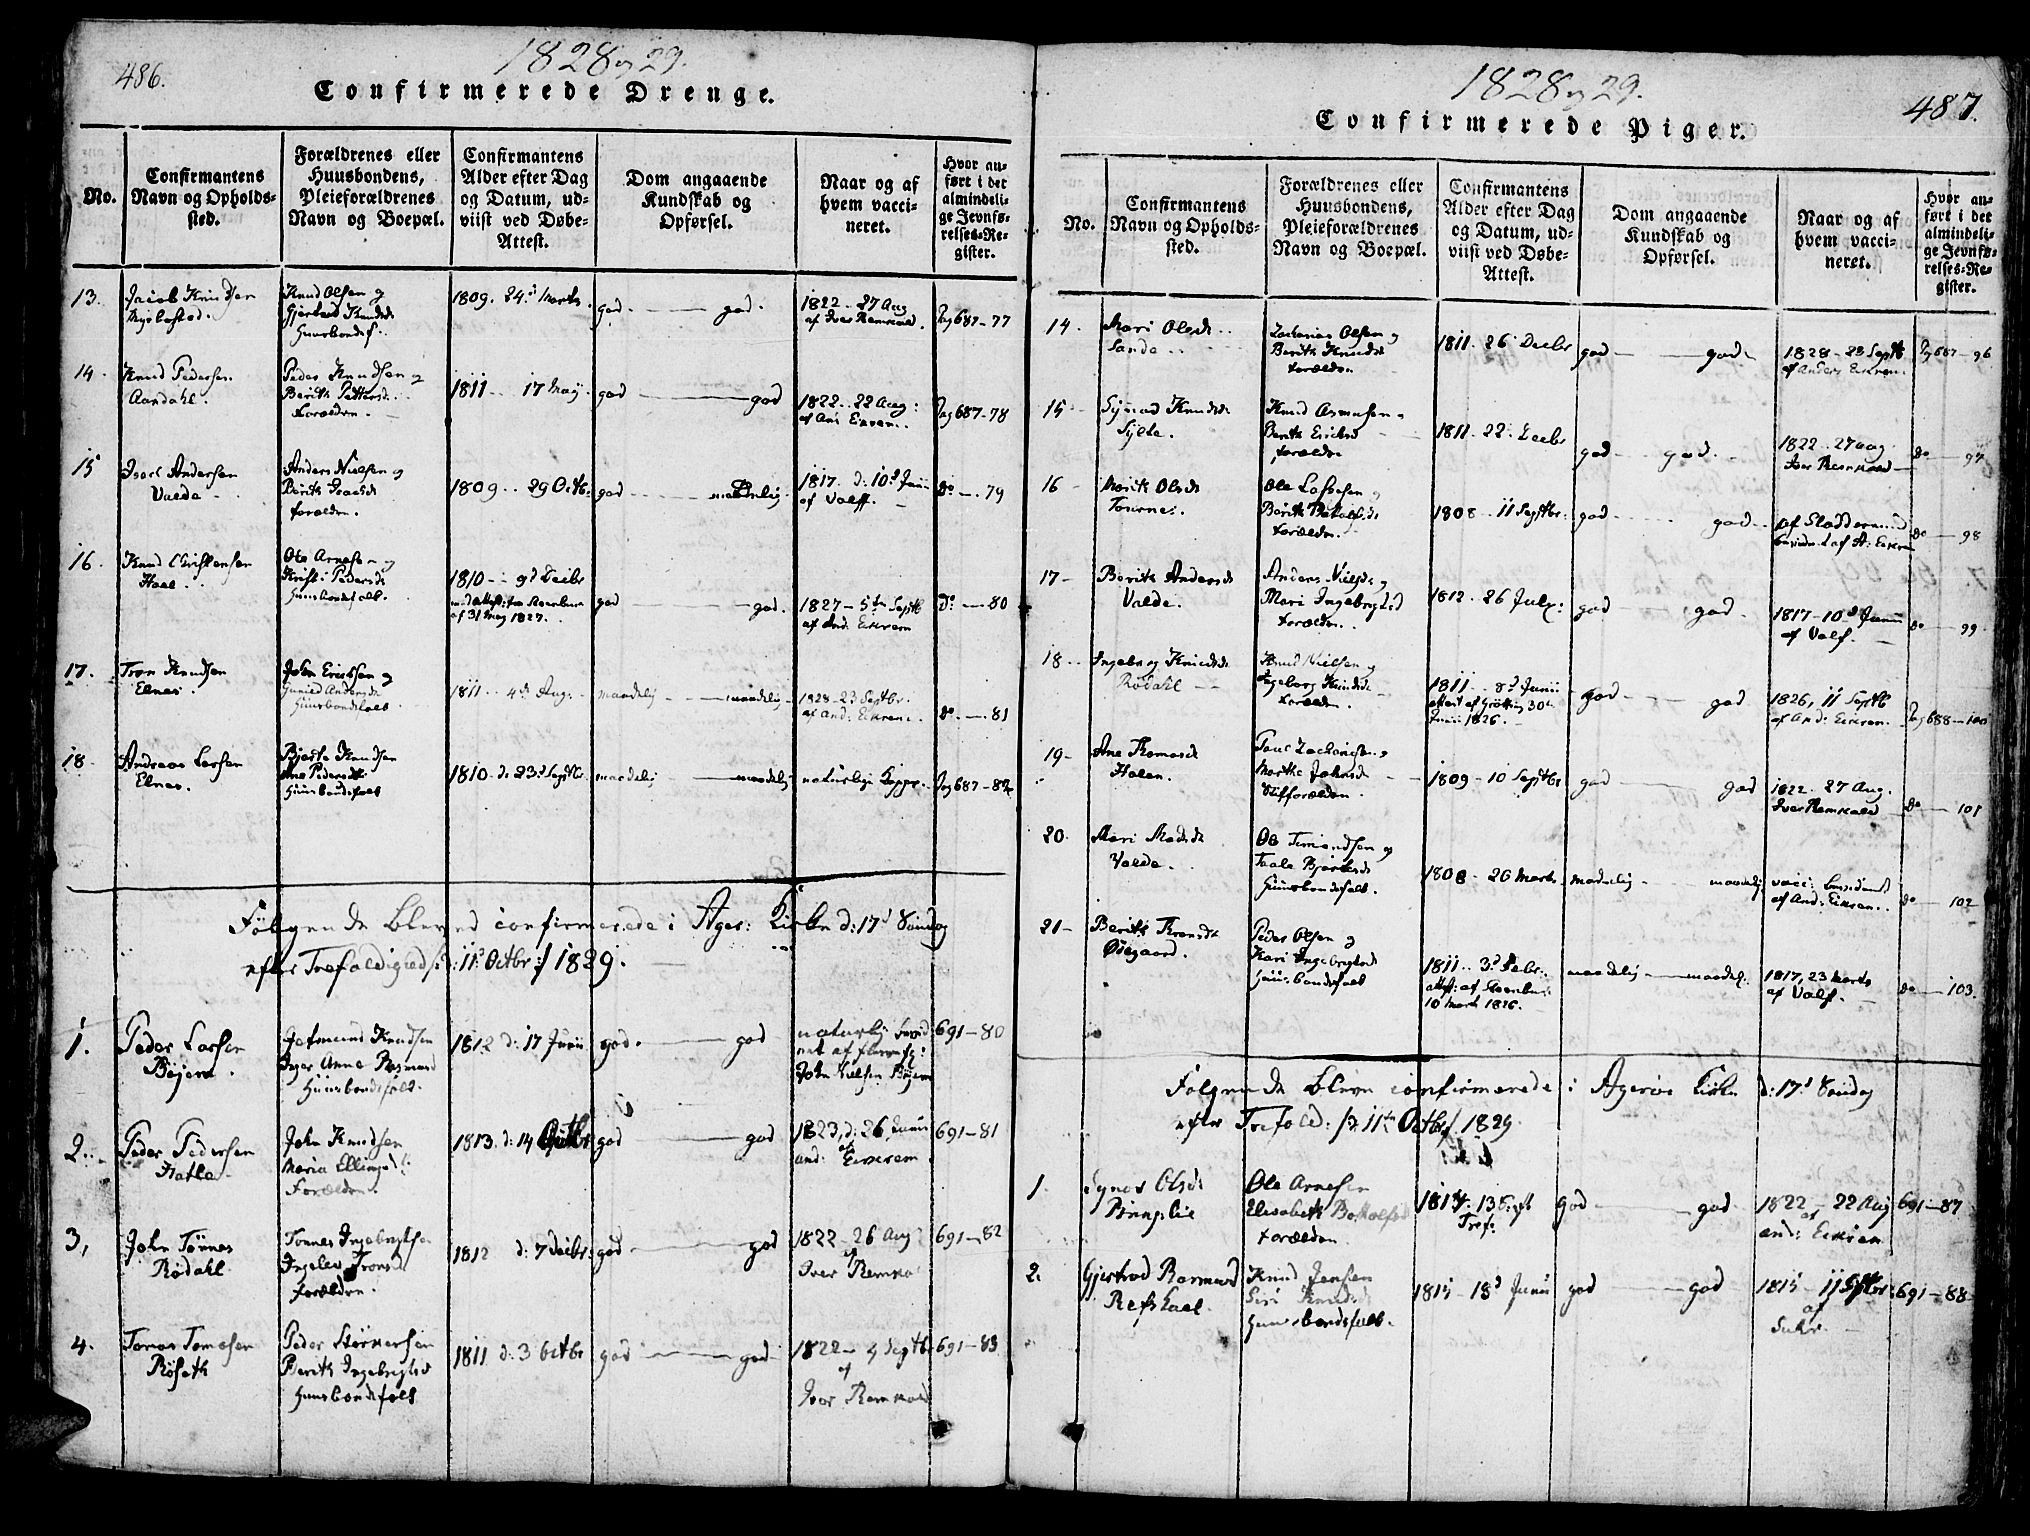 486.
1828 og 29.
Confirmerede Drenge.
No.
Confirmantens
Navn og Opholds-
sted.
Forældrenes eller
Huusbondens,
Pleieforældrenes
Navn og Boepæl.
Confirmantens
Alder efter Dag
og Datum, ud-
viist ved Døbe-
Attest.
Dom angaaende
Kundskab og
Opførsel.
Naar og af
hvem vacci-
neret.
Hvor an-
ført i det
almindeli-
ge Jevnfø-
relses-Re-
gister.
13.
Jacob Knudsen
Knud Olsen og
Huusbondsf.
1809. 24d Marts.
god. god.
1822 - 27 Aug
af Iver Remvold.
Pag 687-77
14.
Knud Pedersen
Aandahl.
Peder Knudsen og
Berith Pettersd.
Forældre.
1811 17 Maij.
god god
1822 - 22 Aug:
af And Eikrem.
Pag 687-78
15
Isach Andersen
Valde
Anders Nielsen og
Berith Isachsd
Forældre.
1809 29 Octb.
god maadelig
1817. d. 10d Junii
af Valff.
Do 79
16.
Knud Christensen
Hoel
Ole Arnesen og
Kristi Pedersd
Huusbondsfolk.
1810 9d Decbr
af 31 May 1827.
god god.
1827 - 5te Septb
af And: Eikrem
Do 80
17.
Tron Knudsen
Elnes.
John Erichsen og
Gunild Andersd
Huusbondsfolk
1811 4d Aug.
maadelig maadelig
1828 - 23 Septbr.
af And: Eikrem.
Do. 81
18.
Andreas Larsen
Elnes.
Bjørte Knudsen
Ane Pedersd
Huusbondsfolk
1810 d. 23d Septbr.
maadelig maadelig
naturlige Kopper.
Pag 687-82
Følgende bleve confirmerede i Ager: Kirke d: 17d Søndag
efter Trefoldighedsf: d: 11te Octbr 1829.
1.
Peder Larsen
Bøjem.
Jetmund Knudsen
Inger Anne Rasmusd
Huusbondsfolk.
1812 d: 17 Junii
god. god
John Nielsen Bøjem
691-80
2.
Peder Pedersen
Hatle
John Knudsen
Maria Ellingsd
Forældre.
1813. d: 14 Octbr
god god
1823, d: 26, Junii
and: af Eikrem.
691-81
3,
John Tønnes
Rødahl
Tønnes Ingebrigtsen
Ingelev Tronsd
Forældre.
1812 d: 7 Decbr:
god god
1822 - 26 Aug
af
Iver Remvo
691-82
4.
Røseth
Peder Størkersen
Berith Ingebrigtsd
Huusbondsfolk
1811 d: 3 Octbr
god god
1822 - 4 Septbr
af
Iver Remvold
691-83
487.
1828 og 29.
Confirmerede Piger.
No.
Confirmantens
Navn og Opholds-
sted.
Forældrenes eller
Huusbondens,
Pleieforældrenes
Navn og Boepæl.
Confirmantens
Alder efter Dag
og Datum, ud-
viist ved Døbe-
Attest.
Dom angaaende
Kundskab og
Opførsel.
Naar og af
hvem vacci-
neret.
Hvor an-
ført i det
almindeli-
ge Jevnfø-
relses-Re-
gister.
14.
Mari Olsd
Sande
Zacharias Olsen og
Berith Knudsd
Forældre
1811. 26 Decbr
god god
1828 - 23 Septb
af Anders Eikrem.
Pag 687-96
15.
Synnud Knudsd
Sylte.
Knud Asmusen og
Berith Ericksd
Forældre
1811. 22. Decbr
god god.
1822 27 aug
Iver Remvold
Do 97
16
Marith Olsd
Tourne.
Ole Lassesen og
Forældre.
1808 11 Septbr:
god god
Do 98
17
Berith Andersd
Valde.
Anders Nielsen og
Mari Ingebrigtsd
Forældre.
1812. 26 July:
god god
1817 - 10d Junii
af Valf.
Do 99
18
Ingeborg Knudsd
Rødahl
Knud Nielsen og
Ingeborg Knudsd
Forældre.
1811. 8d Junii
attest af Grötting 30te
Junii 1826.
god god
1826, 11 Septb
af And: Eikrem.
Pag 688-100
19
Ane Thomasd
Holen.
Marthe Johnsd
Stifforældre.
1809 - 10 Septbr
god god
1822. 27 Aug.
Iver Remvold
Do 101
20.
Mari Madsd
Valde.
Ole Simondsen og
Huusbondsfolk.
1808 - 26 Marts
maadelig maadelig
af And: Eikrem.
Do 102
21
Berith Tronsd
Øigaard.
Peder Olsen og
Kari Ingebrigtsd
Huusbondsfolk
1811 3d Febr:
10 Mart 1826.
maadelig maadel:
1817, 23 Marts
af Valf.
Do 103.
Følgende bleve confirmerede i Agerøe Kirke d: 17d Søndag
efter Trefold: d: 11te Octbr 1829.
1.
Synev Olsd
Ole Arnesen
Elisabeth Botholfsd
Forældre
god god
1822 - 22 Aug
af
and: Eikrem
691-87
2.
Gjertrud Rasmusd
Refshael.
Knud Jensen
Siri Knudsd
Huusbondsfolk.
1815 - 18d Junii
god god
1815 - 11 Septbr
af
691-88